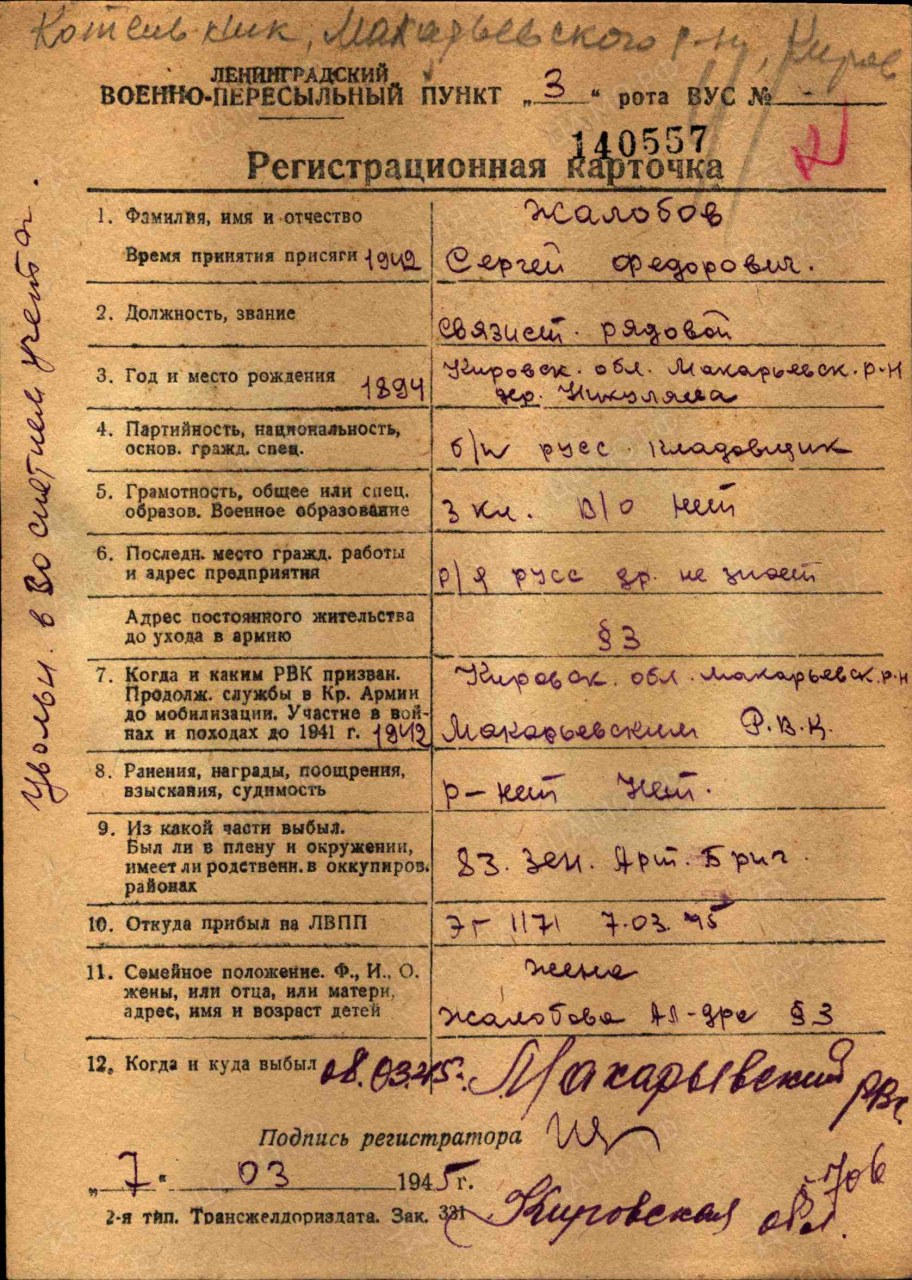 Котельник, Макарьевского р-на, Киров
ЛЕНИНГРАДСКИЙ
ВОЕННО-ПЕРЕСЫЛЬНЫЙ ПУНКТ „3“ рота ВУС № -
140557
Регистрационная карточка
1. Фамилия, имя и отчество Жалобов
Время принятия присяги 1942 Сергей Федорович.
2. Должность, звание связист. рядовой
3. Год и место рождения 1894 Кировск. обл. Макарьевск. р-н
дер.
4. Партийность, национальность,
основ. гражд. спец. б/п русс. кладовщик
5. Грамотность, общее или спец.
образов. Военное образование 3 кл. в/о нет
6. Последн. место гражд. работы
и адрес предприятия р/я русс др. не знает
Адрес постоянного жительства
до ухода в армию §3
7. Когда и каким РВК призван.
Продолж. службы в Кр. Армии
до мобилизации. Участие в вой-
нах и походах до 1941 г. 1942
Кировск. обл. Макарьевск. р-н
Макарьевским Р.В.К.
8. Ранения, награды, поощрения,
взыскания, судимость р-нет Нет.
9. Из какой части выбыл.
Был ли в плену и окружении,
имеет ли родственн. в оккупиров.
районах
83. Зен. Арт. Бриг.
10. Откуда прибыл на ЛВПП ЭГ 1171 7.03.45
11. Семейное положение. Ф., И., О.
жены, или отца, или матери,
адрес, имя и возраст детей
жена
Жалобова Ал-дра §3
12. Когда и куда выбыл 08.03.45г. Макарьевский РВК
Подпись регистратора
„7“ 03 1945 г.
2-я тип. Трансжелдориздата. Зак. 331
Кировская обл.
уволен. в